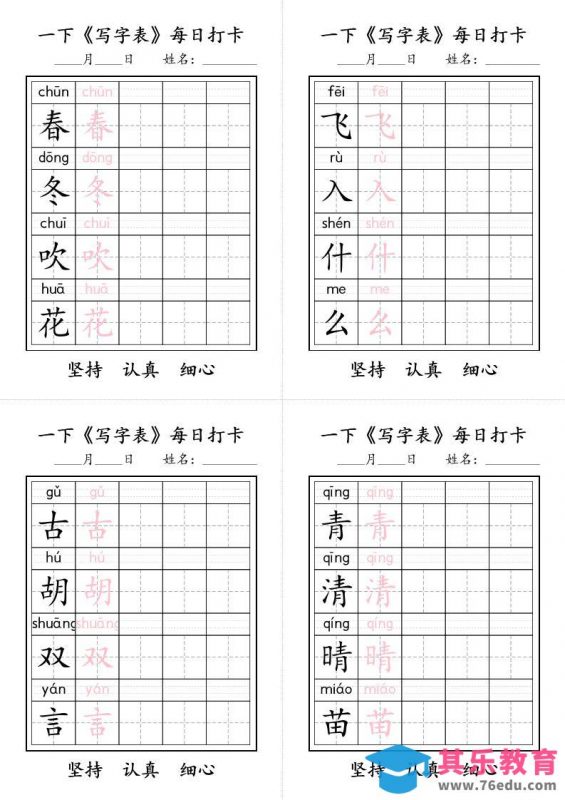 一下《写字表》每日打卡
____月____日 姓名：________
chūn chūn
春 春
dōng dōng
冬 冬
chuī chuī
吹 吹
huā huā
花 花
坚持 认真 细心
一下《写字表》每日打卡
____月____日 姓名：________
fēi fēi
飞 飞
rù rù
入 入
shén shén
什 什
me me
么 么
坚持 认真 细心
一下《写字表》每日打卡
____月____日 姓名：________
gǔ gǔ
古 古
hú hú
胡 胡
shuāng shuāng
双 双
yán yán
言 言
坚持 认真 细心
一下《写字表》每日打卡
____月____日 姓名：________
qīng qīng
青 青
qīng qīng
清 清
qíng qíng
晴 晴
miáo miáo
苗 苗
坚持 认真 细心
其乐教育
www.76edu.com